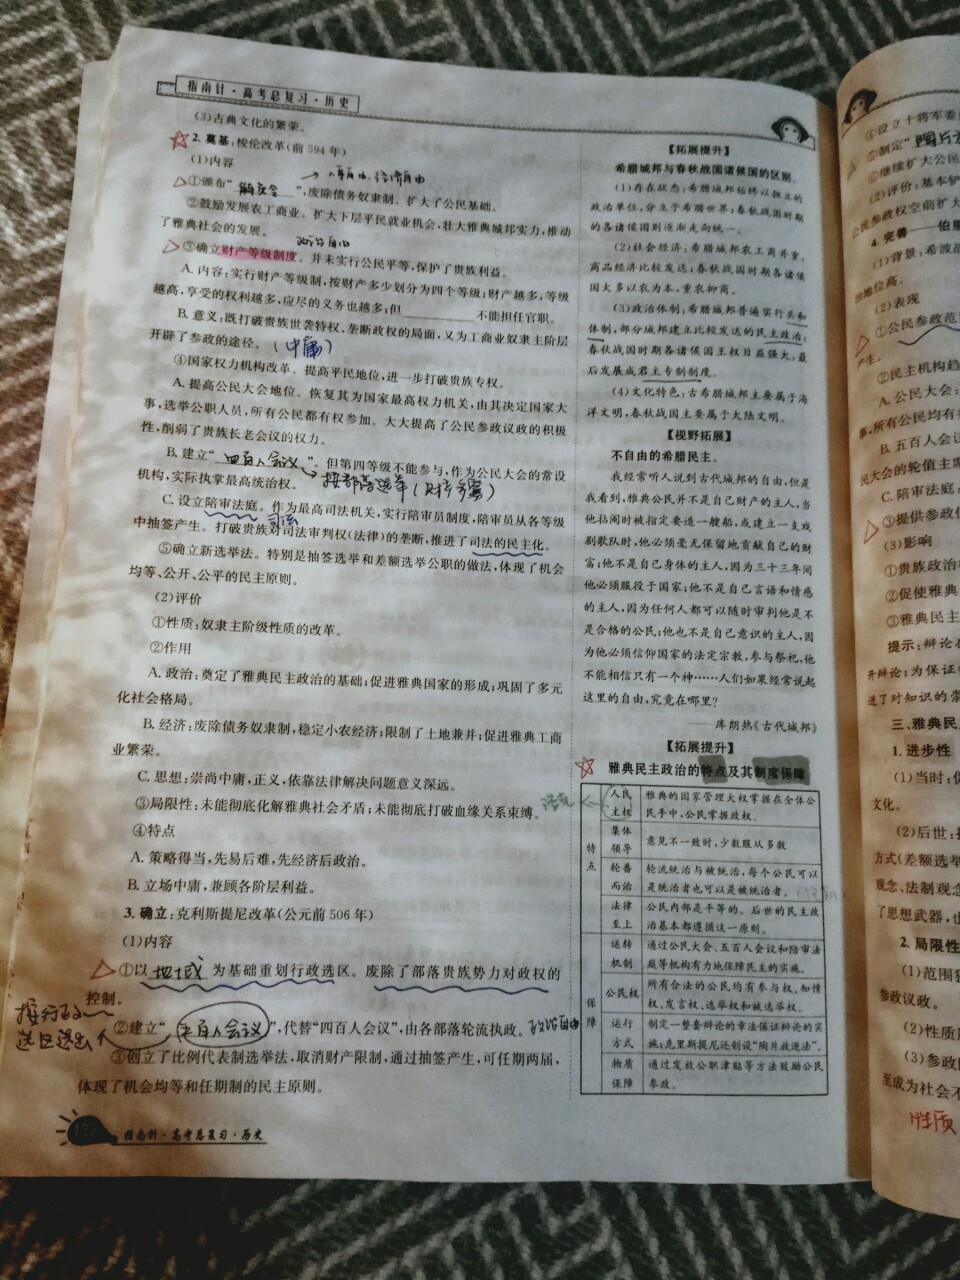 指南针·高考总复习·历史
(3)古典文化的繁荣。
2.奠基:梭伦改革(前594年)
(1)内容
→人身自由,经济自由
①颁布“解负令”,废除债务奴隶制。扩大了公民基础。
②鼓励发展农工商业。扩大下层平民就业机会,壮大雅典城邦实力,推动
了雅典社会的发展。
政治自由
③确立财产等级制度。并未实行公民平等,保护了贵族利益。
A.内容:实行财产等级制,按财产多少划分为四个等级;财产越多,等级
越高,享受的权利越多,应尽的义务也越多;但________不能担任官职。
B.意义:既打破贵族世袭特权、垄断政权的局面,又为工商业奴隶主阶层
开辟了参政的途径。(中庸)
④国家权力机构改革。提高平民地位,进一步打破贵族专权。
A.提高公民大会地位。恢复其为国家最高权力机关,由其决定国家大
事,选举公职人员,所有公民都有权参加。大大提高了公民参政议政的积极
性,削弱了贵族长老会议的权力。
B.建立“四百人会议”。但第四等级不能参与,作为公民大会的常设
机构,实际执掌最高统治权。→按部落选举(财产多寡)
C.设立陪审法庭。作为最高司法机关,实行陪审员制度,陪审员从各等级
司法
中抽签产生。打破贵族对司法审判权(法律)的垄断,推进了司法的民主化。
⑤确立新选举法。特别是抽签选举和差额选举公职的做法,体现了机会
均等、公开、公平的民主原则。
(2)评价
①性质:奴隶主阶级性质的改革。
②作用
A.政治:奠定了雅典民主政治的基础;促进雅典国家的形成;巩固了多元
化社会格局。
B.经济:废除债务奴隶制,稳定小农经济;限制了土地兼并;促进雅典工商
业繁荣。
C.思想:崇尚中庸,正义,依靠法律解决问题意义深远。
③局限性:未能彻底化解雅典社会矛盾;未能彻底打破血缘关系束缚。
④特点
A.策略得当,先易后难,先经济后政治。
B.立场中庸,兼顾各阶层利益。
3.确立:克利斯提尼改革(公元前506年)
(1)内容
①以地域为基础重划行政选区。废除了部落贵族势力对政权的
控制。
按行政
选区选出人
②建立“五百人会议”,代替“四百人会议”,由各部落轮流执政。政治自由
③创立了比例代表制选举法,取消财产限制,通过抽签产生,可任期两届,
体现了机会均等和任期制的民主原则。
132
指南针·高考总复习·历史
【拓展提升】
希腊城邦与春秋战国诸侯国的区别。
(1)存在状态:希腊城邦始终以独立的
政治单位,分立于希腊世界;春秋战国时期
的各诸侯国则逐渐走向统一。
(2)社会经济:希腊城邦农工商并重,
商品经济比较发达;春秋战国时期各诸侯
国大多以农为本,重农抑商。
(3)政治体制:希腊城邦普遍实行共和
体制,部分城邦建立比较发达的民主政治;
春秋战国时期各诸侯国王权日益强大,最
后发展成君主专制制度。
(4)文化特色:古希腊城邦主要属于海
洋文明,春秋战国主要属于大陆文明。
【视野拓展】
不自由的希腊民主。
我经常听人说到古代城邦的自由,但是
我看到,雅典公民并不是自己财产的主人,当
他拈阄时被指定要造一艘船,或建立一支戏
剧歌队时,他必须毫无保留地贡献自己的财
富;他不是自己身体的主人,因为三十三年间
他必须服役于国家;他不是自己言语和情感
的主人,因为任何人都可以随时审判他是不
是合格的公民;他也不是自己意识的主人,因
为他必须信仰国家的法定宗教,参与祭祀,他
不能相信只有一个神……人们如果经常说起
这里的自由,究竟在哪里?
——库朗热《古代城邦》
【拓展提升】
雅典民主政治的特点及其制度保障
特点
人民主权 雅典的国家管理大权掌握在全体公民手中,公民掌握政权。
集体领导 意见不一致时,少数服从多数
轮番而治 轮流统治与被统治,每个公民可以是统治者也可以是被统治者。
法律至上 公民内部是平等的。后世的民主政治基本都遵循这一原则。
保障
运转机制 通过公民大会、五百人会议和陪审法庭等机构有力地保障民主的实施。
公民权 所有合法的公民均有参与权、知情权、发言权、选举权和被选举权。
运行方式 制定一整套辩论的章法保证辩论的实施;克里斯提尼还创设“陶片放逐法”。
物质保障 通过发放公职津贴等方法鼓励公民参政。
④设立十将军委
⑤制定“陶片
⑥继续扩大公民
(2)评价:基本铲
公民参政权空前扩大
4.完善——伯里
(1)背景:希波战
治地位高。
(2)表现
①公民参政范
产生。
②民主机构趋
A.公民大会:
事,所有公民均有
B.五百人会议
民大会的轮值主席
C.陪审法庭:
③提供参政保
(3)影响
①贵族政治
②促使雅典
③雅典民主
提示:辩论在
开辩论;为保证
进了对知识的崇
三、雅典民
1.进步性
(1)当时:促
文化。
(2)后世:
方式(差额选举
观念、法制观念
了思想武器,也
2.局限性
(1)范围狭
参政议政。
(2)性质
(3)参政
至成为社会不
性质